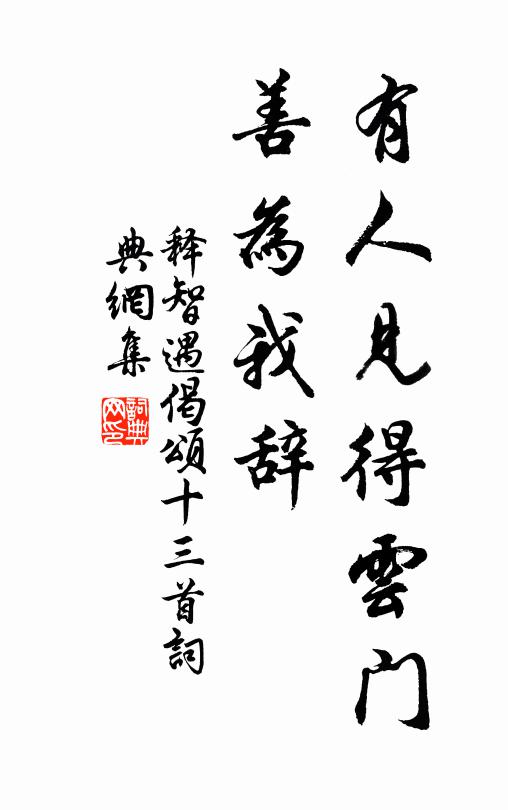 有人見得雲门
善為我辞
释智遇偈頌十三首詞
典網集
詞典
网印